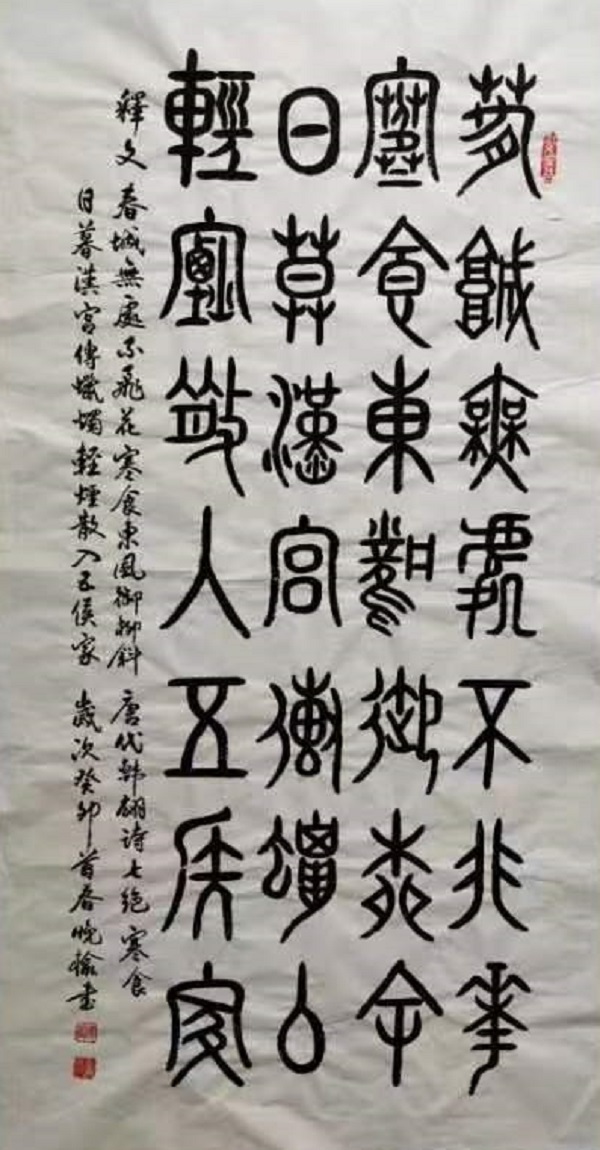 春城無處不飛花
寒食東風御柳斜
日暮漢宮傳蠟燭
輕煙散入五侯家
釋文 春城無處不飛花寒食東風御柳斜 唐代韩翃诗七绝 寒食
日暮漢宮傳蠟燭輕煙散入五侯家 歲次癸卯首春晚榆書